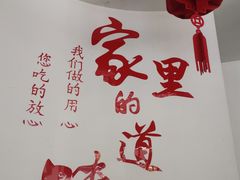 家里
的
道
我们做的用心
您吃的放心